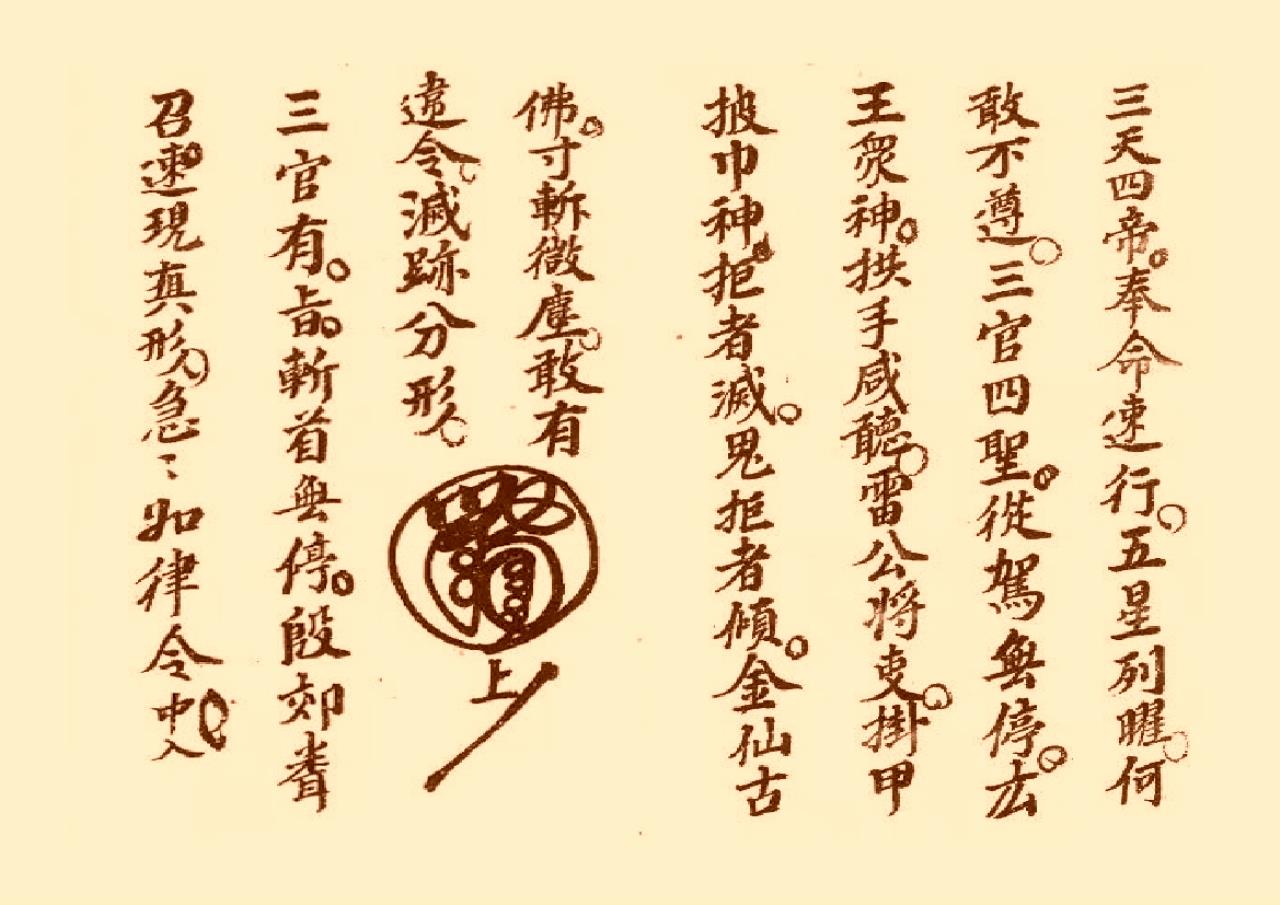 三天四帝。奉命速行。五星列曜。何
敢不遵。三官四聖。從駕無停。玄
王眾神。拱手咸聽。雷公將吏。掛甲
披巾神。拒者滅。鬼拒者傾。金仙古
佛。寸斬微塵。敢有
違令。滅跡分形。
上
三官有。旨。斬首無停。殷郊
召。速現真形。急〻如律令。